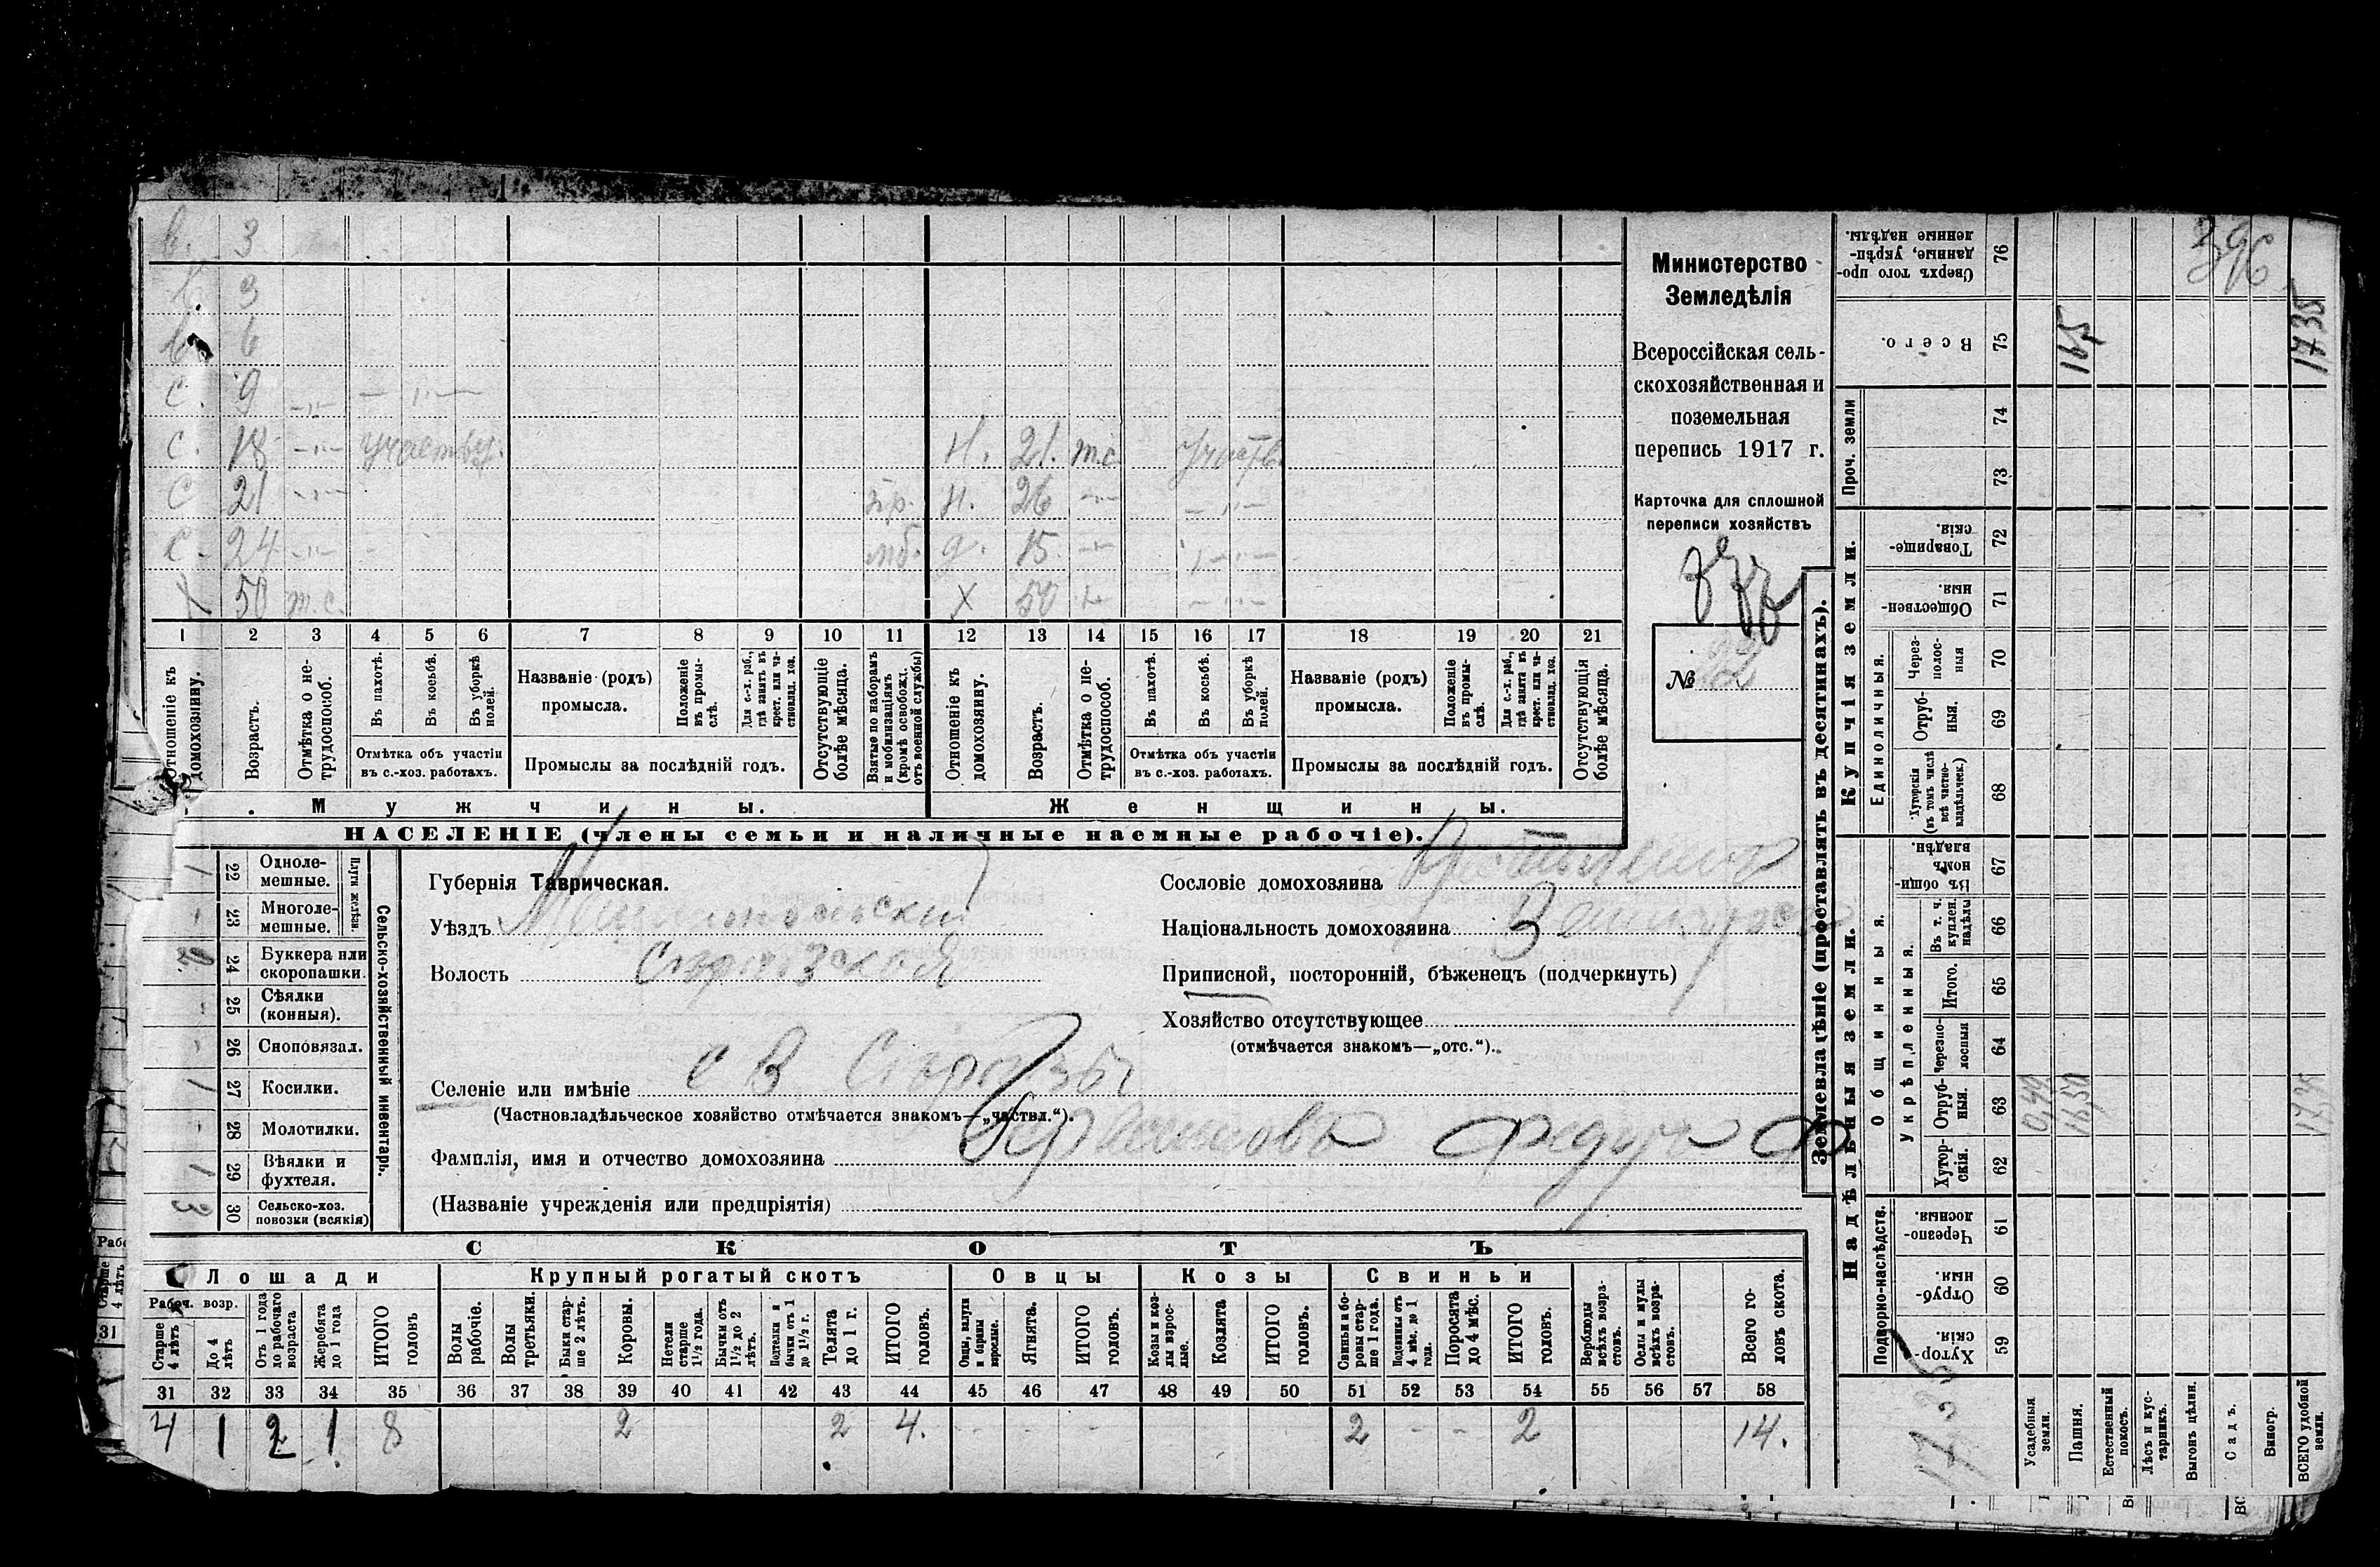 в. 3
в. 3
в. 6
с. 9 -"- - "-
с. 18 -"- участву. н. 21. т.с. участв.
с 21 -"- н. 26 -"- -"-
с. 24 -"- мб. д. 15 -"- -"-
х 50 т.с. х 50 -"- -"-
1 2 3 4 5 6 7 8 9 10 11 12 13 14 15 16 17 18 19 20 21
Отношеніе къ домохозяину.
Возрастъ.
Отмѣтка о нетрудоспособ.
Въ пахотѣ.
Въ косьбѣ.
Въ уборкѣ полей.
Отмѣтка объ участіи въ с.-хоз. работахъ.
Названіе (родъ) промысла.
Положеніе въ промыслѣ.
Для с.-х. раб., гдѣ занятъ въ крест. или частновлад. хоз.
Промыслы за послѣдній годъ.
Отсутствующіе болѣе мѣсяца.
Взятые по наборамъ и мобилизаціямъ (кромѣ освобожд. отъ военной службы)
Отношеніе къ домохозяину.
Возрастъ.
Отмѣтка о нетрудоспособ.
Въ пахотѣ.
Въ косьбѣ.
Въ уборкѣ полей.
Отмѣтка объ участіи въ с.-хоз. работахъ.
Названіе (родъ) промысла.
Положеніе въ промыслѣ.
Для с.-х. раб., гдѣ занята въ крест. или частновлад. хоз.
Промыслы за послѣдній годъ.
Отсутствующія болѣе мѣсяца.
Мужчины. Женщины.
НАСЕЛЕНІЕ (члены семьи и наличные наемные рабочіе).
Министерство
Земледѣлія
Всероссійская сель-
скохозяйственная и
поземельная
перепись 1917 г.
Карточка для сплошной
переписи хозяйствъ
№
Сельско-хозяйственный инвентарь.
Плуги желѣзн.
1 22 Однолемешные.
- 23 Многолемешные.
2. 24 Буккера или скоропашки.
- 25 Сѣялки (конныя).
- 26 Сноповязал.
1 27 Косилки.
- 28 Молотилки.
1 29 Вѣялки и фухтеля.
3 30 Сельско-хоз. повозки (всякія)
Губернія Таврическая.
Уѣздъ Мелитопольскій
Волость
Селеніе или имѣніе с В
(Частновладѣльческое хозяйство отмѣчается знакомъ—„частвл.“).
Фамилія, имя и отчество домохозяина
(Названіе учрежденія или предпріятія)
Сословіе домохозяина
Національность домохозяина
Приписной, посторонній, бѣженецъ (подчеркнуть)
Хозяйство отсутствующее
(отмѣчается знакомъ—„отс.“).
СКОТЪ
Лошади Крупный рогатый скотъ Овцы Козы Свиньи
Рабоч. возр.
Старше 4 лѣтъ
До 4 лѣтъ
Отъ 1 года до рабочаго возраста
Жеребята до 1 года
ИТОГО головъ
Волы рабочіе.
Волы третьяки.
Быки старше 2 лѣтъ.
Коровы.
Нетели старше 1½ года.
Бычки отъ 1½ до 2 лѣтъ.
Подтелки и бычки отъ 1 до 1½ г.
Телята до 1 г.
ИТОГО головъ.
Овцы, валухи и бараны взрослые.
Ягнята.
ИТОГО головъ.
Козы и козлы взрослые.
Козлята
ИТОГО головъ.
Свиньи и боровы старше 1 года.
Подсвинки отъ 4 мѣс. до 1 года.
Поросята до 4 мѣс.
ИТОГО головъ.
Верблюды всѣхъ возрастовъ.
Ослы и мулы всѣхъ возрастовъ.
Всего головъ скота.
31 32 33 34 35 36 37 38 39 40 41 42 43 44 45 46 47 48 49 50 51 52 53 54 55 56 57 58
4 1 2 1 8 2 2 4. - - - 2 - - 2 14.
Землевладѣніе (проставлять въ десятинахъ).
Купчія земли.
Надѣльныя земли.
Сверхъ того проданные, укрѣпленные надѣлы. 76
396
Всего. 75 165 1735
Проч. земли 74 73
Товарищескія. 72
Общественныя. 71
Единоличныя.
Черезполосныя 70
Отрубныя. 69
Хуторскія (въ томъ числѣ всѣ частновладѣльческ.) 68
Общинныя.
Въ общинномъ владѣн. 67
Укрѣпленныя.
Въ т. ч. куплен. надѣлы 66
Итого. 65
Черезполосныя 64
Отрубныя. 63 16,50 17,35
Хуторскія. 62
Подворно-наслѣдств.
Черезполосныя. 61
Отрубныя. 60
Хуторскія. 59
1735
Усадебныя земли.
Пашня.
Естественный покосъ.
Лѣсъ и кустарникъ.
Выгонъ цѣлин.
Садъ.
Виногр.
ВСЕГО удобной земли.